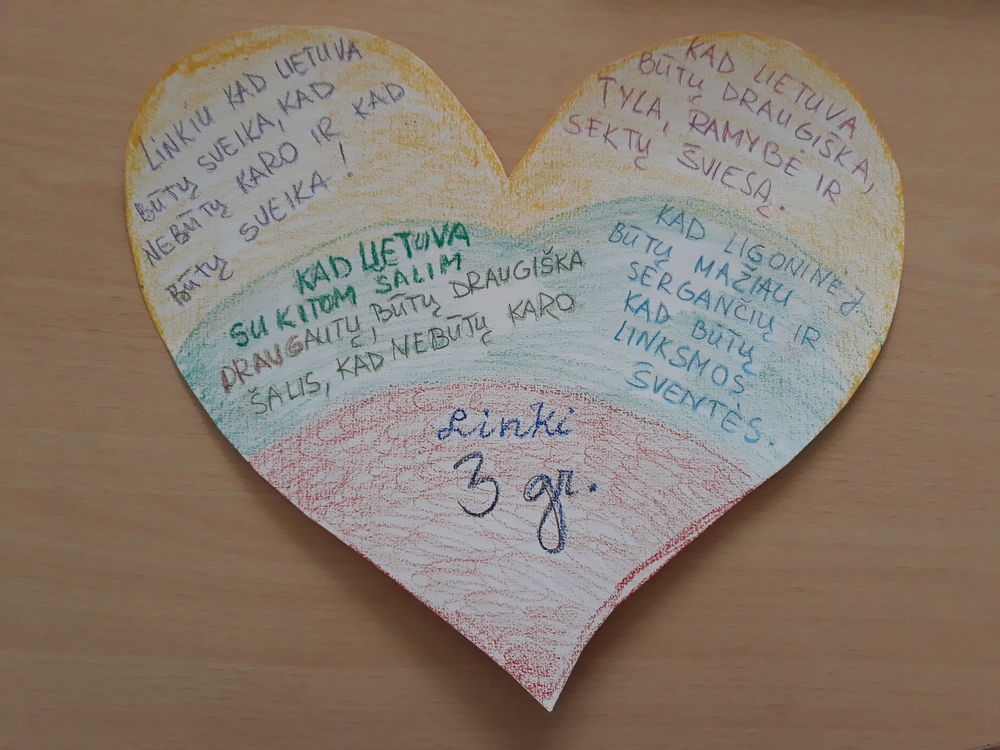 LINKIU KAD LIETUVA
BŪTŲ SVEIKA, KAD
NEBŪTŲ KARO IR KAD
BŪTŲ SVEIKA !
KAD LIETUVA
BŪTŲ DRAUGIŠKA,
TYLA, RAMYBĖ IR
SEKTŲ ŠVIESĄ.
KAD LIETUVA
SU KITOM ŠALIM
DRAUGAUTŲ, BŪTŲ DRAUGIŠKA
ŠALIS, KAD NEBŪTŲ KARO
KAD LIGONINĖJ
BŪTŲ MAŽIAU
SERGANČIŲ IR
KAD BŪTŲ
LINKSMOS
ŠVENTĖS.
Linki
3 gr.